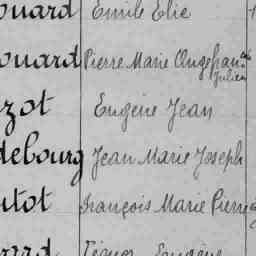 ouard Emile Elie
ouard Pierre Marie Ange fran
Julien
zot Eugène Jean
debourg Jean Marie Joseph
utot François Marie Pierre
Eugène